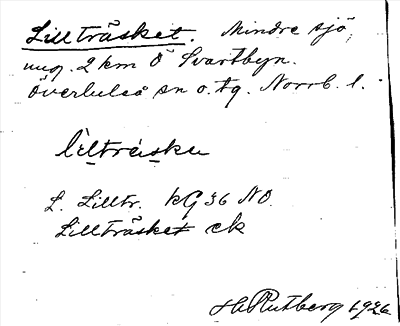 Lillträsket. Mindre sjö,
ung. 2 km Ö Svartbyn.
Överluleå sn o. tg. Norrb. l.
lìlträ̀sku
L. Lilltr. kG 36 NO.
Lillträsket ek
H. Rutberg 1926